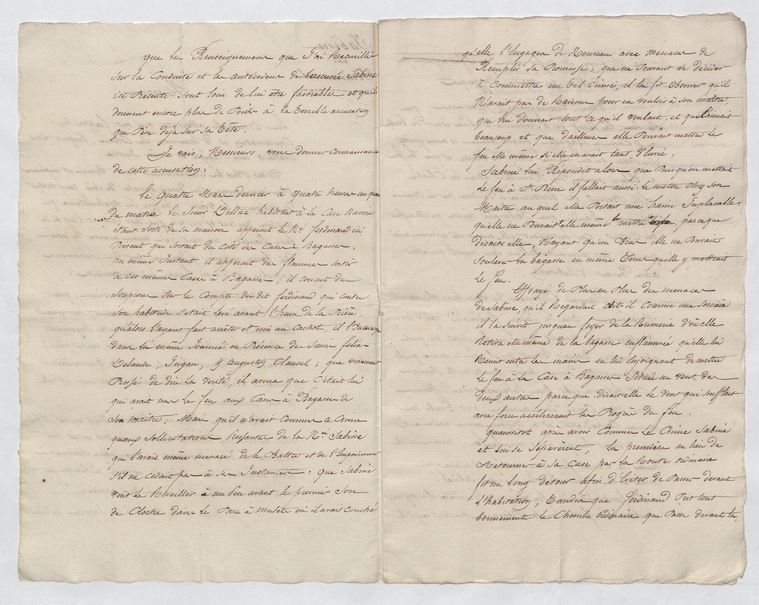 que les Renseignement que J'ai Recueilli
sur la Conduite et les antécédens de Sabine
ici Présente sont loin de lui être favorables et qu'ils
donnent encore plus de Poids à la terrible accusation
qui Pèse déjà sur sa tête.
Je vais, Messieurs, vous donner connaissance
de cette accusation:
Le quatre Mars dernier à quatre heures
du matin le Sieur Dellue habitant à la Case
étant Sorti de sa maison apperçut le Nre ferdinand
qui Sortait du coté des Cases à Bagasse,
au même instant il apperçut des flammes sortir
de ces même Cases à Bagasses; il conçut des
soupçons sur le Compte du dit ferdinand qui contre
son habitude s'etait levé avant l'heure de la Prière,
qu'alors l'ayant fait arrêter et mis au Cachot, il
dans la même Journée en Présence des Sieurs
Delande, Jugan, & augustin Clausel; que vivement
Pressé de dire la vérité, il avoua que C'était lui
qui avait mis le feu aux Cases à Bagasses de
son maître, Mais qu'il n'avait Commis ce Crime
qu'aux sollicitations de la Nsse Sabine
qui l'avait même menacé de le Battre et de l'empoisonner
s'il ne cédait pas à ses Instances; que Sabine
vint le Réveiller un peu avant le premier Son
de Cloche dans le Parc à mulets où il avait couché
qu'elle l'engagea de Nouveau avec menaces de
Remplir sa Promesse; que ne Pouvant se décider
à Commettre un tel Crime, il lui fit observer qu'il
N'avait pas de Raisons pour en vouloir à son maître
qui lui donnait tout ce qu'il voulait, et qu'il aimait
beaucoup et que d'ailleurs elle Pouvait mettre le
feu elle même si elle en avait tant d'Envie,
Sabine lui Répondit alors que Puisqu'on mettait
le feu à St Réme il fallait aussi le mettre chez son
Maître au quel elle Portait une haine Implacable,
qu'elle ne Pouvait elle même le mettre parceque
disait elle, N'ayant qu'un bras elle ne Pouvait
Soulever la bagasse en même tems qu'elle y mettrait
le feu.
Effrayé de Plus en Plus des menaces
de Sabine, qu'il Regardait dit-il comme une Sorcière
il la Suivit jusqu'au foyer de la d'où elle
Retira elle même de la bagasse enflammée qu'elle lui
Remit entre les mains en lui enjoignant de mettre
le feu à la Case à Bagasse Située au vent, des
deux autres parce que disait elle le vent qui soufflait
avec force accélérerait les Progrès du feu.
qu'aussitôt après avoir Commis le Crime Sabine
et lui se séparèrent, la première au lieu de
Retourner à sa Case par la Route ordinaire
fit un long détour afin d'éviter de Passer devant
l'habitation, tandis que ferdinand Prit tout
bonnement le Chemin ordinaire qui Passe devant la